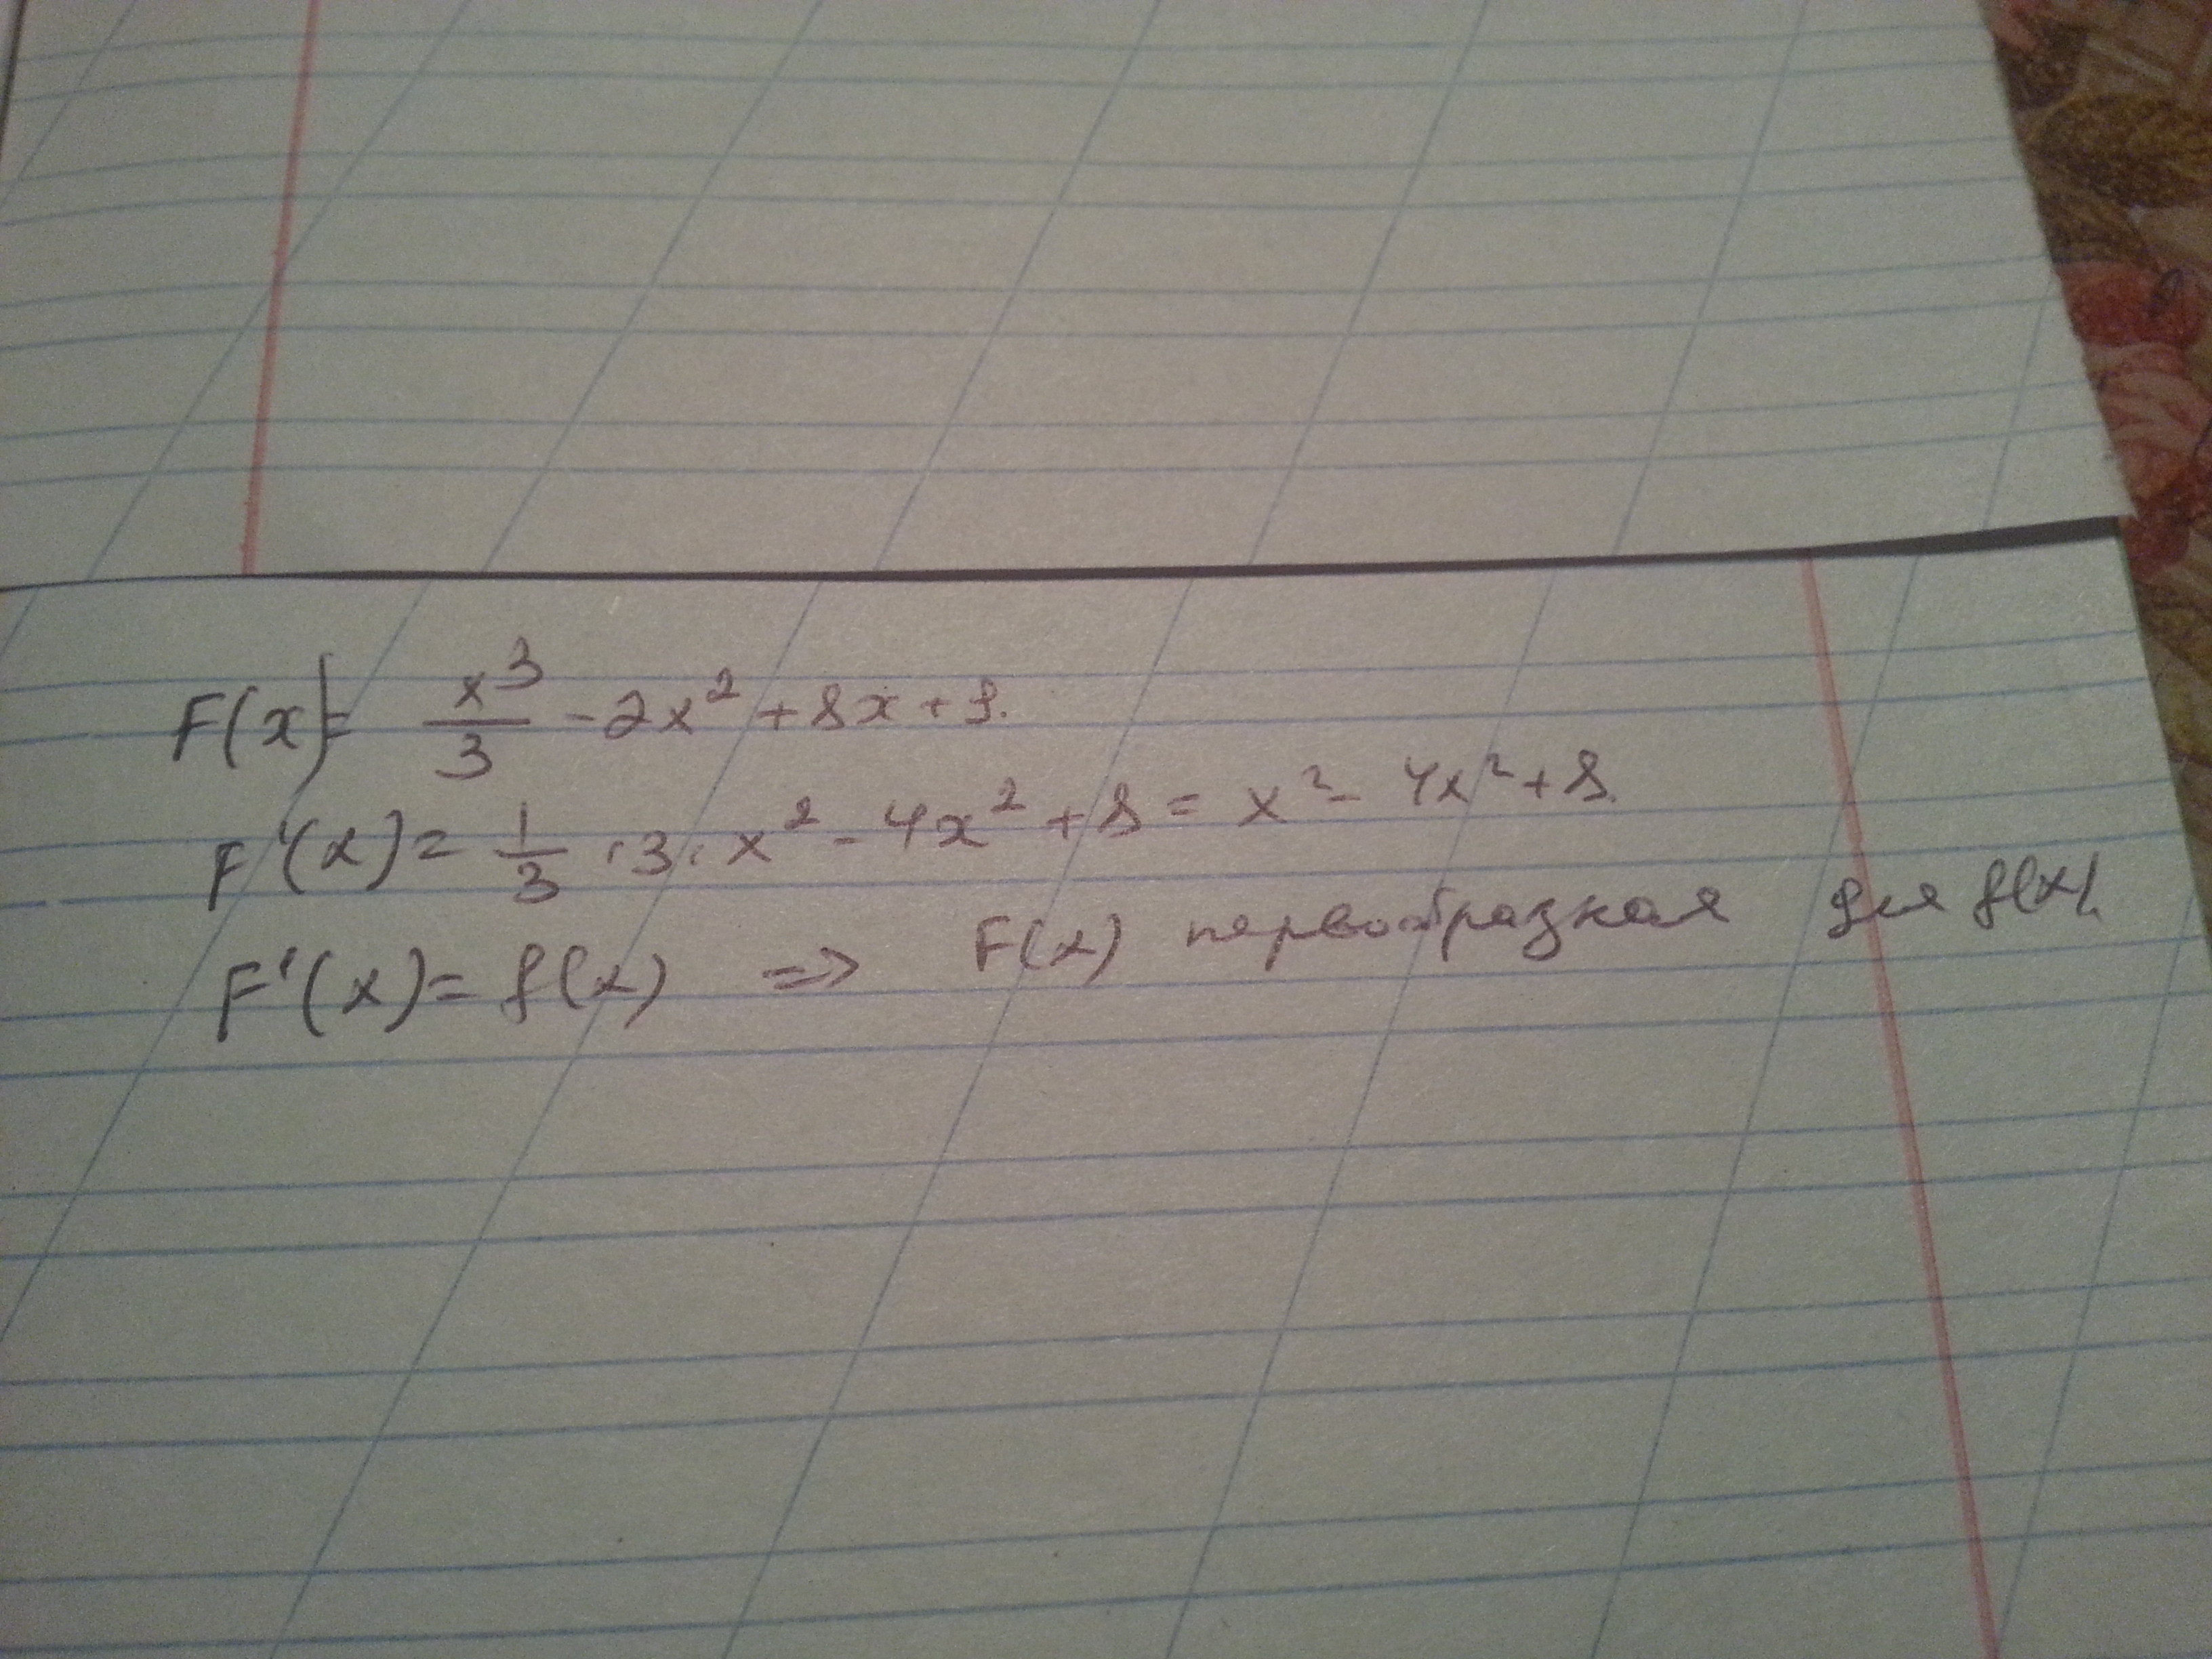 F(x)= x³/3 - 2x² + 8x + 9.
F'(x) = 1/3 · 3 · x² - 4x² + 8 = x² - 4x² + 8.
F'(x) = f(x) => F(x) первообразная для f(x).